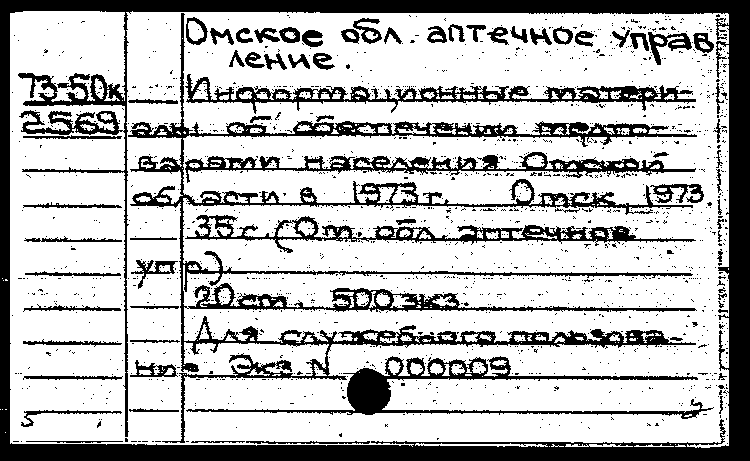 Омское обл. аптечное управ
ление.
73-50к
Информационные матери-
2569
алы об обеспечении медто-
варами населения Омской
области в 1973 г. Омск, 1973.
35 с. (Ом. обл. аптечное
упр.).
20 см. 500 экз.
Для служебного пользова-
ние. Экз. N 000009
5